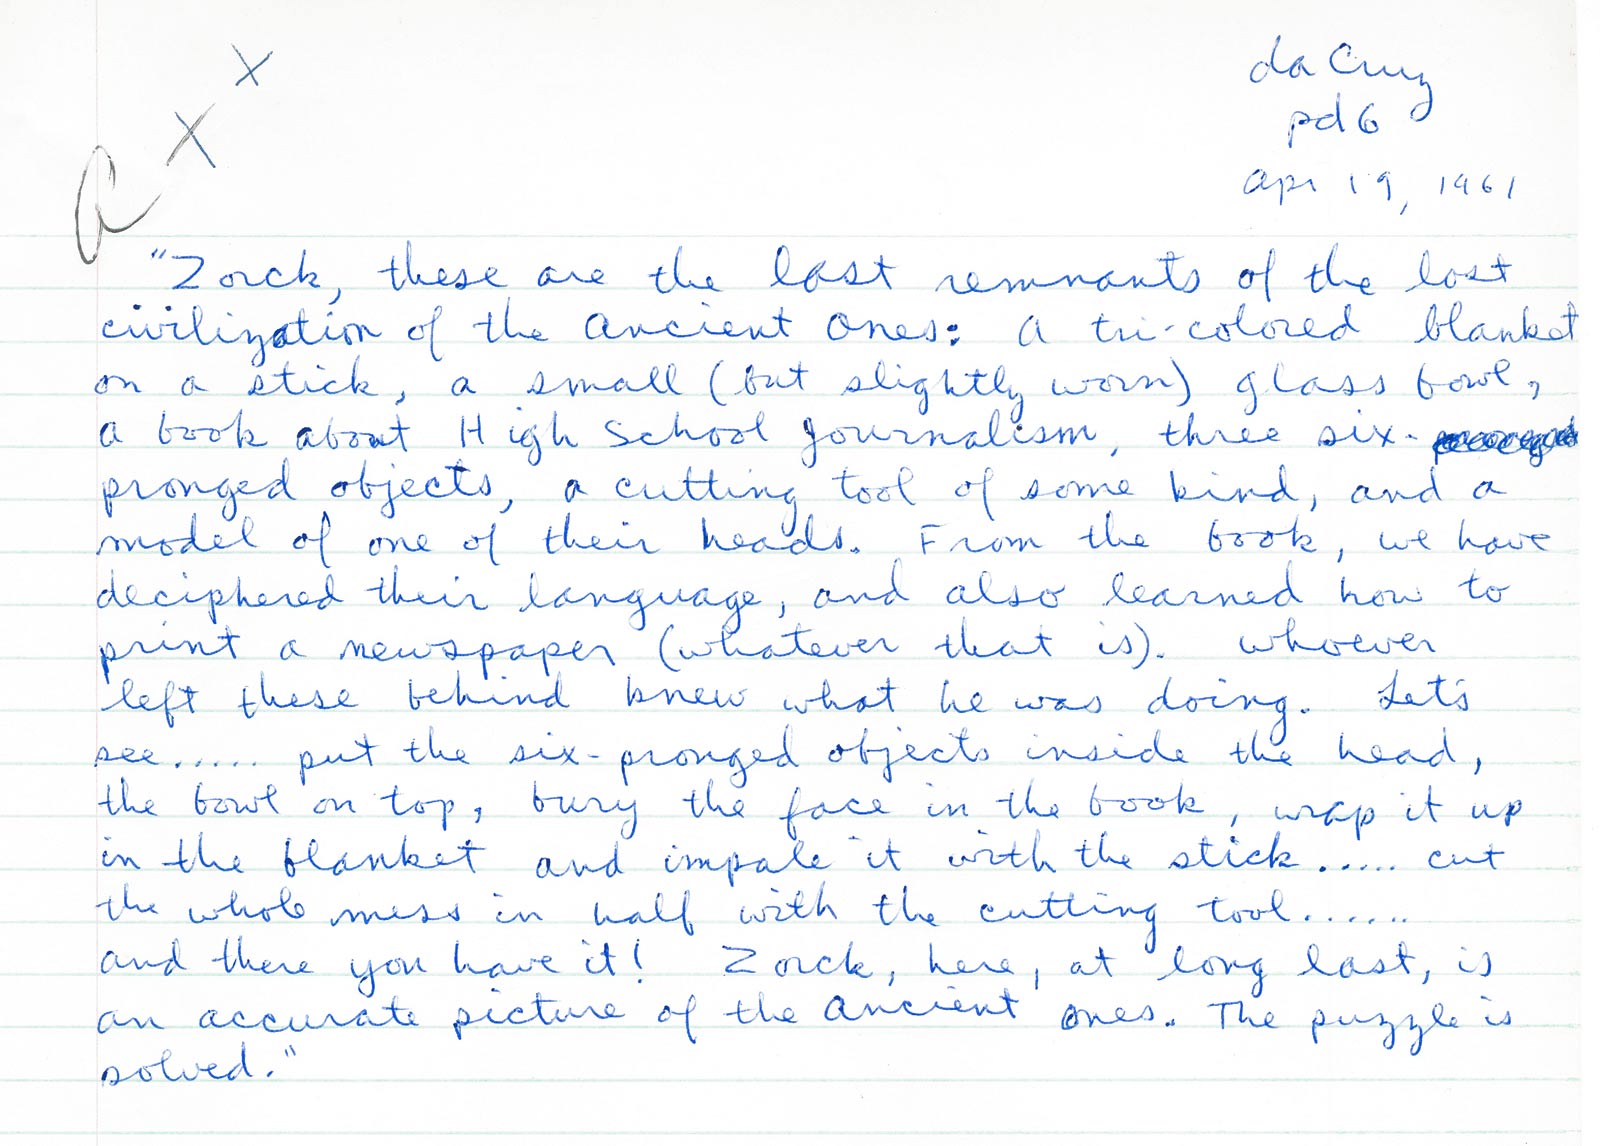 da Cruz
pd 6
Apr 19, 1961
a + x
"Zorck, these are the last remnants of the lost
civilization of the Ancient Ones: A tri-colored blanket
on a stick, a small (but slightly worn) glass bowl,
a book about High School Journalism, three six-
pronged objects, a cutting tool of some kind, and a
model of one of their heads. From the book, we have
deciphered their language, and also learned how to
print a newspaper (whatever that is). Whoever
left these behind knew what he was doing. Let's
see..... put the six-pronged objects inside the head,
the bowl on top, bury the face in the book, wrap it up
in the blanket and impale it with the stick..... cut
the whole mess in half with the cutting tool......
and there you have it! Zorck, here, at long last, is
an accurate picture of the Ancient Ones. The puzzle is
solved."